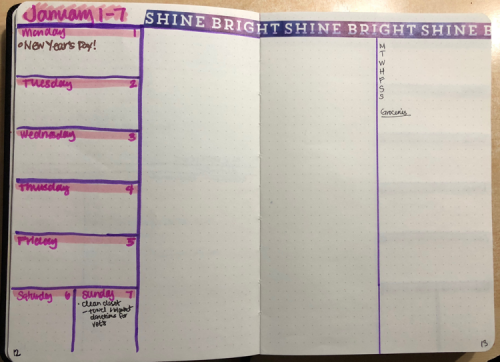 January 1-7
SHINE BRIGHT SHINE BRIGHT SHINE B
Monday 1
New Year's Day!
Tuesday 2
Wednesday 3
Thursday 4
Friday 5
Saturday 6
Sunday 7
- clean closet
donations for
vets
12
M
T
W
H
F
S
S
Groceries
13